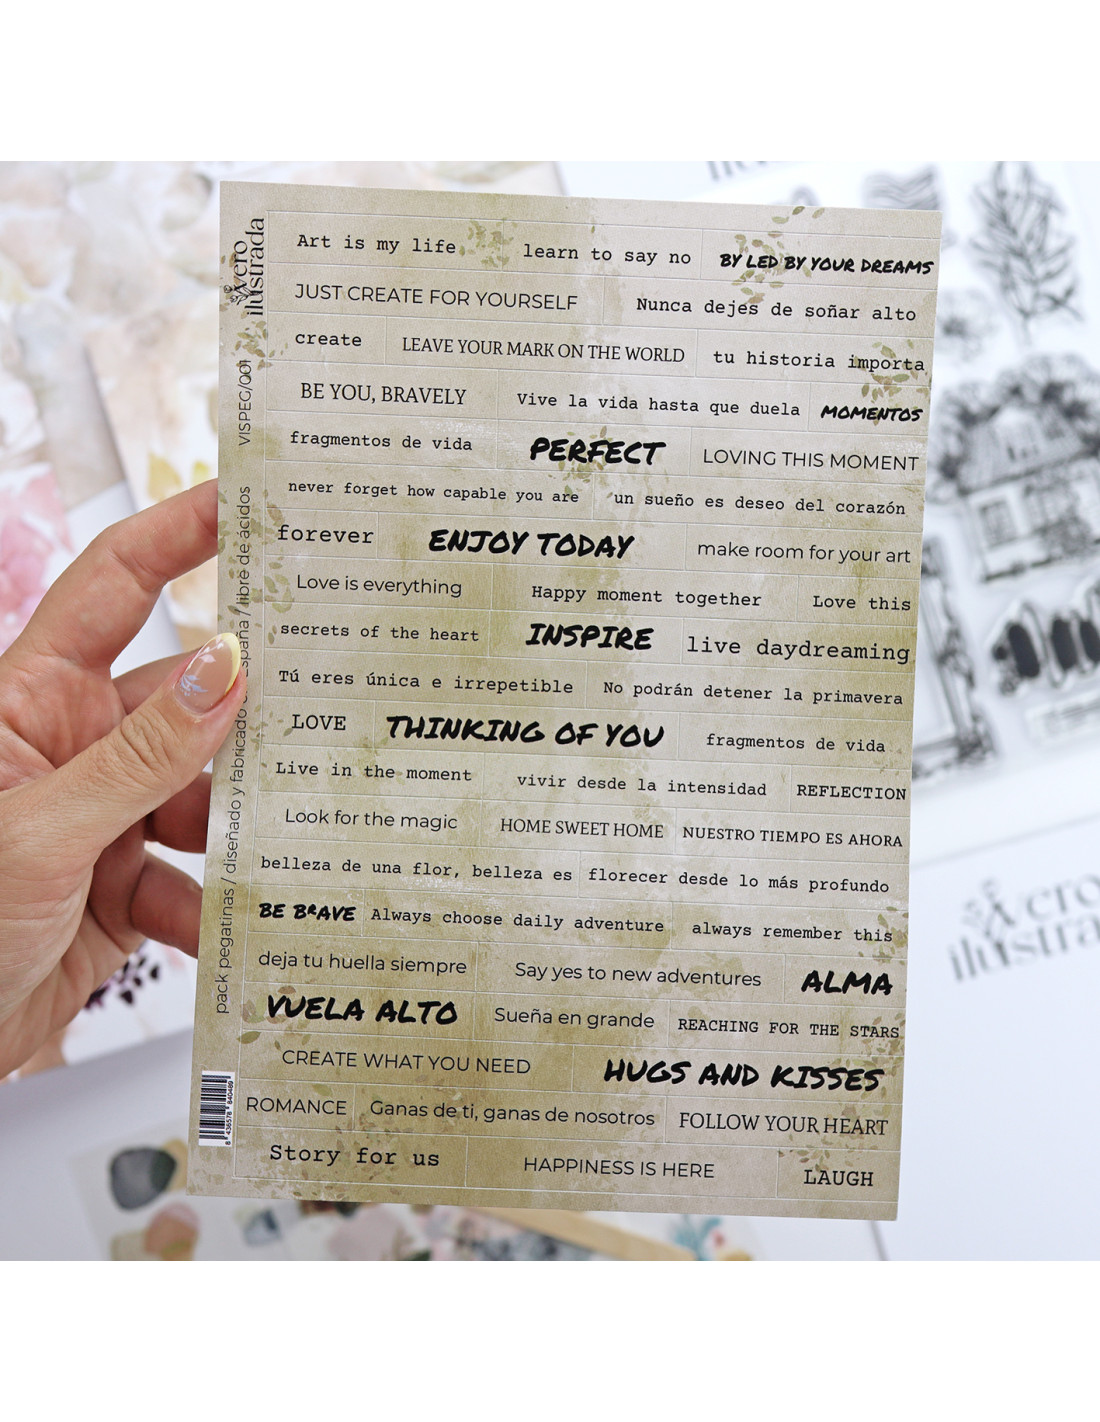 vero
ilustrada
VISPEG/001
pack pegatinas / diseñado y fabricado en España / libre de ácidos
8 436578 840489
Art is my life learn to say no BY LED BY YOUR DREAMS
JUST CREATE FOR YOURSELF Nunca dejes de soñar alto
create LEAVE YOUR MARK ON THE WORLD tu historia importa
BE YOU, BRAVELY Vive la vida hasta que duela MOMENTOS
fragmentos de vida PERFECT LOVING THIS MOMENT
never forget how capable you are un sueño es deseo del corazón
forever ENJOY TODAY make room for your art
Love is everything Happy moment together Love this
secrets of the heart INSPIRE live daydreaming
Tú eres única e irrepetible No podrán detener la primavera
LOVE THINKING OF YOU fragmentos de vida
Live in the moment vivir desde la intensidad REFLECTION
Look for the magic HOME SWEET HOME NUESTRO TIEMPO ES AHORA
belleza de una flor, belleza es florecer desde lo más profundo
BE BRAVE Always choose daily adventure always remember this
deja tu huella siempre Say yes to new adventures ALMA
VUELA ALTO Sueña en grande REACHING FOR THE STARS
CREATE WHAT YOU NEED HUGS AND KISSES
ROMANCE Ganas de ti, ganas de nosotros FOLLOW YOUR HEART
Story for us HAPPINESS IS HERE LAUGH